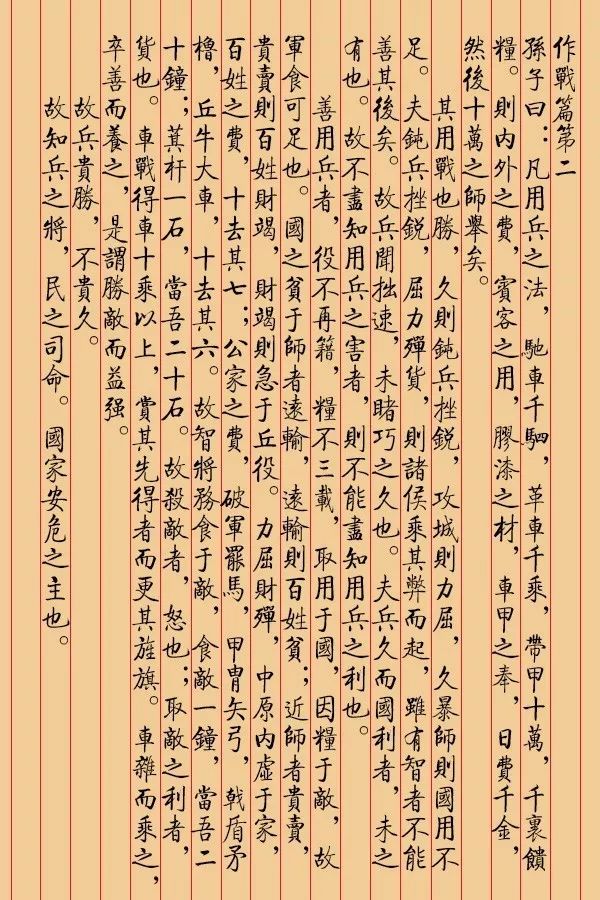 作戰篇第二
孫子曰：凡用兵之法，馳車千駟，革車千乘，帶甲十萬，千裏饋
糧。則内外之費，賓客之用，膠漆之材，車甲之奉，日費千金，
然後十萬之師舉矣。
其用戰也勝，久則鈍兵挫銳，攻城則力屈，久暴師則國用不
足。夫鈍兵挫銳，屈力殫貨，則諸侯乘其弊而起，雖有智者不能
善其後矣。故兵聞拙速，未睹巧之久也。夫兵久而國利者，未之
有也。故不盡知用兵之害者，則不能盡知用兵之利也。
善用兵者，役不再籍，糧不三載，取用于國，因糧于敵，故
軍食可足也。國之貧于師者遠輸，遠輸則百姓貧；近師者貴賣，
貴賣則百姓財竭，財竭則急于丘役。力屈財殫，中原内虛于家，
百姓之費，十去其七；公家之費，破軍罷馬，甲胄矢弓，戟盾矛
櫓，丘牛大車，十去其六。故智將務食于敵，食敵一鐘，當吾二
十鐘；萁杆一石，當吾二十石。故殺敵者，怒也；取敵之利者，
貨也。車戰得車十乘以上，賞其先得者而更其旌旗。車雜而乘之，
卒善而養之，是謂勝敵而益强。
故兵貴勝，不貴久。
故知兵之將，民之司命。國家安危之主也。